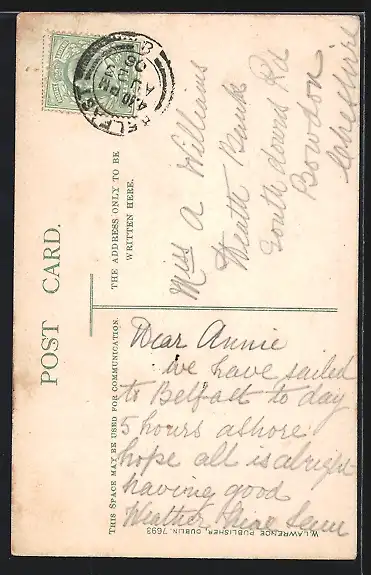 POST CARD.
THE ADDRESS ONLY TO BE
WRITTEN HERE.
THIS SPACE MAY BE USED FOR COMMUNICATION.
BELFAST
4.30 PM
AU
06
Miss A Williams
Heath Bank
South downs Rd
Bowdon
Cheshire
Dear Annie
we have sailed
to Belfast to day
5 hours ashore
hope all is alright
having good
Weather
W. LAWRENCE PUBLISHER, DUBLIN. 7693